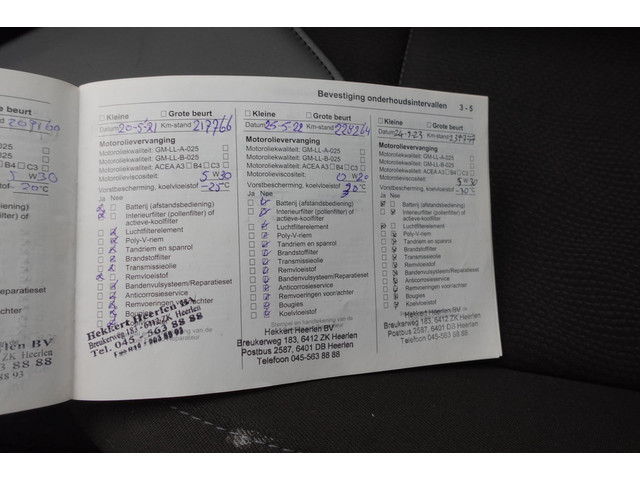 Bevestiging onderhoudsintervallen 3 - 5
e beurt
W 30
-20°C
ng)
of
eparatieset
hter
Heerlen BV
ZK Heerlen
8 88
88 93
Kleine Grote beurt
Datum 20-5-21 Km-stand 217766
Motorolievervanging
Motoroliekwaliteit: GM-LL-A-025
Motoroliekwaliteit: GM-LL-B-025
Motoroliekwaliteit: ACEA A3 B4 C3
Motorolieviscositeit: 5 W 30
Vorstbescherming, koelvloeistof -25°C
Ja Nee
Batterij (afstandsbediening)
Interieurfilter (pollenfilter) of
actieve-koolfilter
Luchtfilterelement
Poly-V-riem
Tandriem en spanrol
Brandstoffilter
Transmissieolie
Remvloeistof
Bandenvulsysteem/Reparatieset
Anticorrosieservice
Remvoeringen voor/achter
Bougies
Hekkert Heerlen BV
Breukerweg 183, 6412 ZK Heerlen
Tel. 045 - 563 88 88
Kleine Grote beurt
Datum 25-5-22 Km-stand 228264
Motorolievervanging
Motoroliekwaliteit: GM-LL-A-025
Motoroliekwaliteit: GM-LL-B-025
Motoroliekwaliteit: ACEA A3 B4 C3
Motorolieviscositeit: 0 W 20
Vorstbescherming, koelvloeistof 30°C
Ja Nee
Batterij (afstandsbediening)
Interieurfilter (pollenfilter) of
actieve-koolfilter
Luchtfilterelement
Poly-V-riem
Tandriem en spanrol
Brandstoffilter
Transmissieolie
Remvloeistof
Bandenvulsysteem/Reparatieset
Anticorrosieservice
Remvoeringen voor/achter
Bougies
Koelvloeistof
Hekkert Heerlen BV
Breukerweg 183, 6412 ZK Heerlen
Postbus 2587, 6401 DB Heerlen
Telefoon 045-563 88 88
Kleine Grote beurt
Datum 24-9-23 Km-stand
Motorolievervanging
Motoroliekwaliteit: GM-LL-A-025
Motoroliekwaliteit: GM-LL-B-025
Motoroliekwaliteit: ACEA A3 B4 C3
Motorolieviscositeit: 5 W 30
Vorstbescherming, koelvloeistof -30°C
Ja Nee
Batterij (afstandsbediening)
Interieurfilter (pollenfilter) of
actieve-koolfilter
Luchtfilterelement
Poly-V-riem
Tandriem en spanrol
Brandstoffilter
Transmissieolie
Remvloeistof
Bandenvulsysteem/Reparatieset
Anticorrosieservice
Remvoeringen voor/achter
Bougies
Koelvloeistof
Hekkert Heerlen BV
Breukerweg 183, 6412 ZK Heerlen
Postbus 2587, 6401 DB Heerlen
Telefoon 045-563 88 88